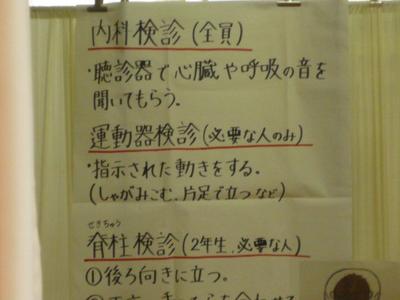 内科検診(全員)
・聴診器で心臓や呼吸の音を
聞いてもらう。
運動器検診(必要な人のみ)
・指示された動きをする。
(しゃがみこむ、片足で立つなど)
せきちゅう
脊柱検診(2年生、必要な人)
①後ろ向きに立つ。